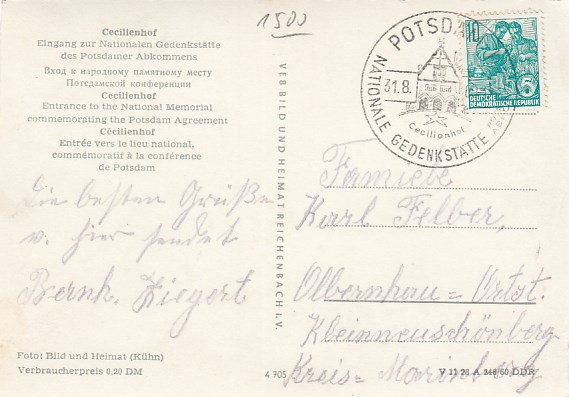 1500
Cecilienhof
Eingang zur Nationalen Gedenkstätte
des Potsdamer Abkommens
Вход к народному памятному месту
Потсдамской конференции
Cecilienhof
Entrance to the National Memorial
commemorating the Potsdam Agreement
Cécilienhof
Entrée vers le lieu national,
commémoratif à la conférence
de Potsdam
Die besten Grüße
v. hier sendet
Bernh. Ziegert
Foto: Bild und Heimat (Kühn)
Verbraucherpreis 0,20 DM
VEB BILD UND HEIMAT REICHENBACH I. V.
4 705
POTSDAM
31.8.
Cecilienhof
NATIONALE GEDENKSTÄTTE
10
5
DEUTSCHE
DEMOKRATISCHE REPUBLIK
Familie
Karl Felber,
Olbernhau = Ortst.
Kleinneuschönberg
Kreis = Marienberg
V 11 28 A 346/60 DDR